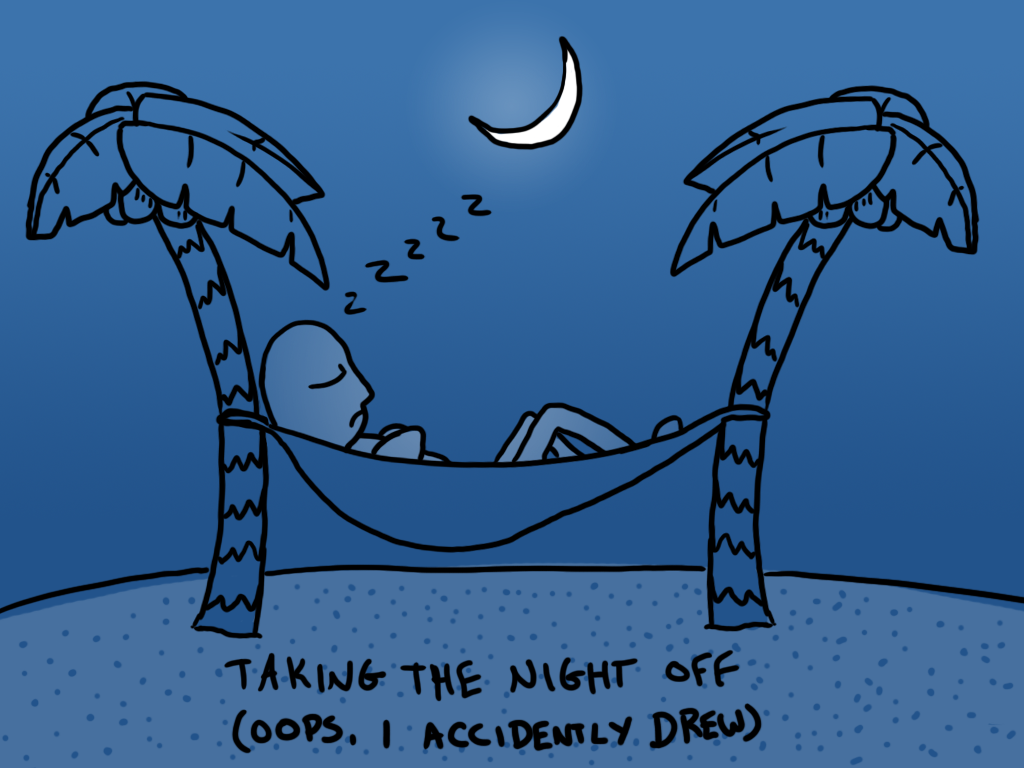 z z z z z
TAKING THE NIGHT OFF
(OOPS. I ACCIDENTLY DREW)